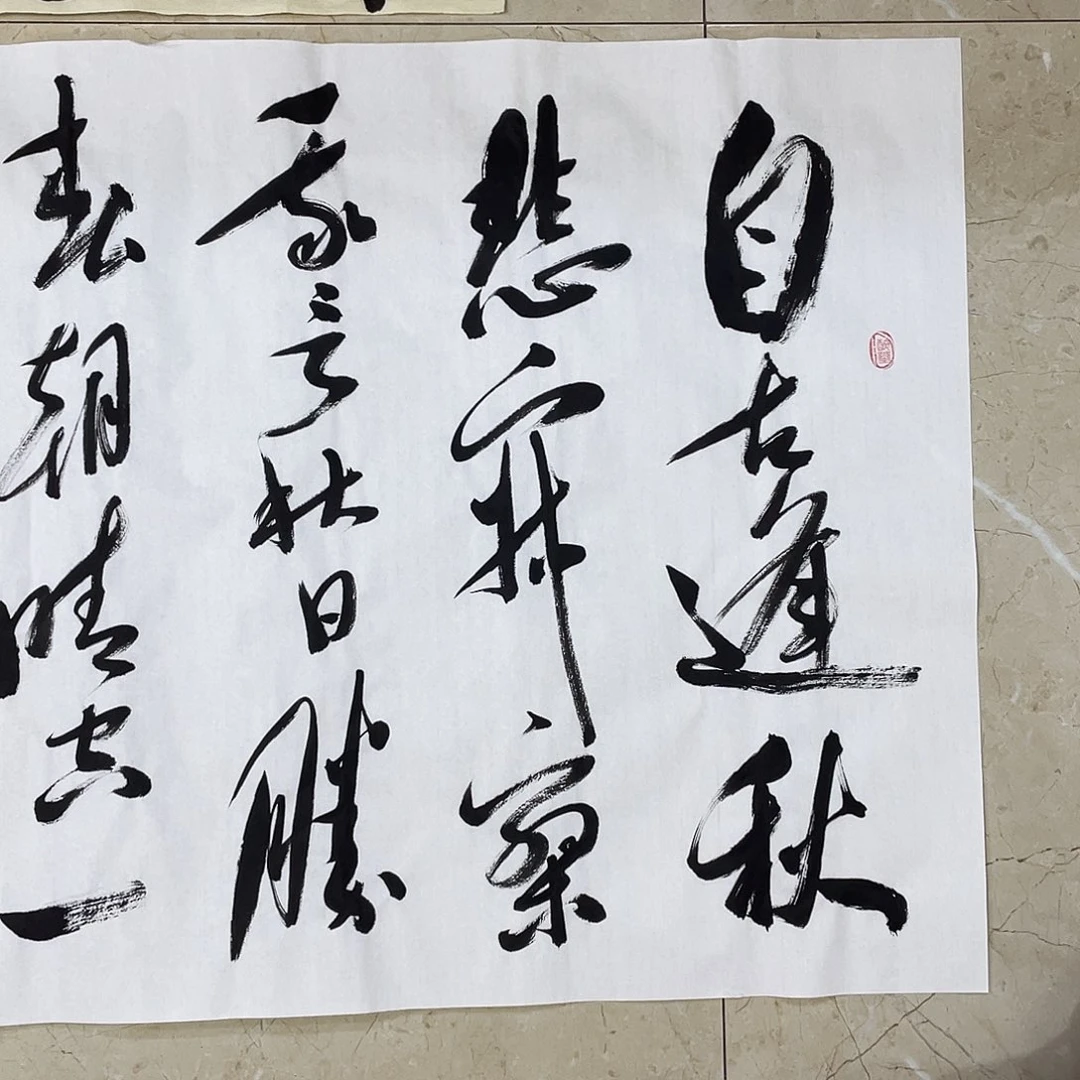 自古逢秋
悲寂寥
我言秋日勝
春朝晴空一